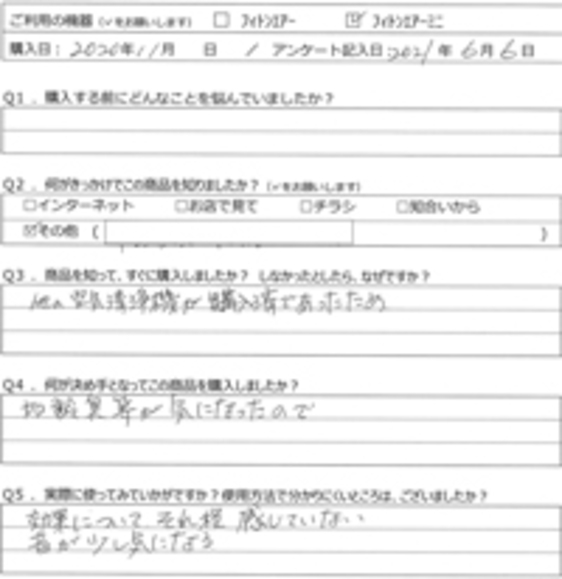 ご利用の機器（✓をお願いします） □ フィトンエアー ☑ フィトンエアーミニ
購入日：2020年11月 日 ／ アンケート記入日：2021年6月6日
Q1．購入する前にどんなことを悩んでいましたか？
Q2．何がきっかけでこの商品を知りましたか？（✓をお願いします）
□インターネット □お店で見て □チラシ □知合いから
☑その他（ ）
Q3．商品を知って、すぐに購入しましたか？ しなかったとしたら、なぜですか？
他の空気清浄機が購入済であったため
Q4．何が決め手となってこの商品を購入しましたか？
が気になったので
Q5．実際に使ってみていかがですか？使用方法で分かりにくいところは、ございましたか？
効果について それ程 感じていない
音が少し気になる